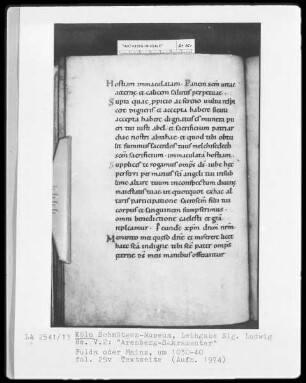 Hostiam immaculatam. Panem scm uitae
aeternę et calicem salutis perpetuae.
Supra quae, ppicio ac sereno uultu respi
cere digneris et accepta habere
accepta habere dignatus es munera pu
eri tui iusti abel et sacrificium patriar
chae nostri abrahae et quod tibi obtu
lit summus sacerdos tuus melchisedech
scm sacrificium immaculatā hostiam
Supplices te rogamus omps ds iube hęc
perferri per manus sci angeli tui in sub
lime altare tuum in conspectum diuinę
maiestatis tuae ut quotquot ex hac al
taris participatione sacrosctm filii tui
corpus et sanguinem sumpserimus
omni benedictione caelesti et gra
repleamur. P eunde xpm dnm nrm
Memento mei quęso dnę et miserere licet
haec sca indigne tibi scę pater omps
eterne ds meis manibus offerantur
LA 2541/13 Köln Schnütgen-Museum, Leihgabe Slg. Ludwig
Hs. V.2: "Arenberg-Sakramentar"
Fulda oder Mainz, um 1030-40
fol. 25v Textseite (Aufn. 1974)